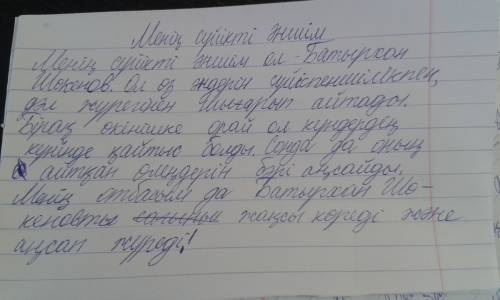 Менің сүйікті әншім
Менің сүйікті әншім ол - Батырхан
Шөкенов. Ол өз әндерін сүйіспеншілікпен,
дәл жүрегінен шығарып айтады.
Бірақ өкінішке орай ол күндердің
күнінде қайтыс болды. Сонда да оның
айтқан өлеңдерін бәрі аңсайды.
Мейің отбасым да Батырхан Шө-
кеновты жақсы көреді және
аңсап жүреді!